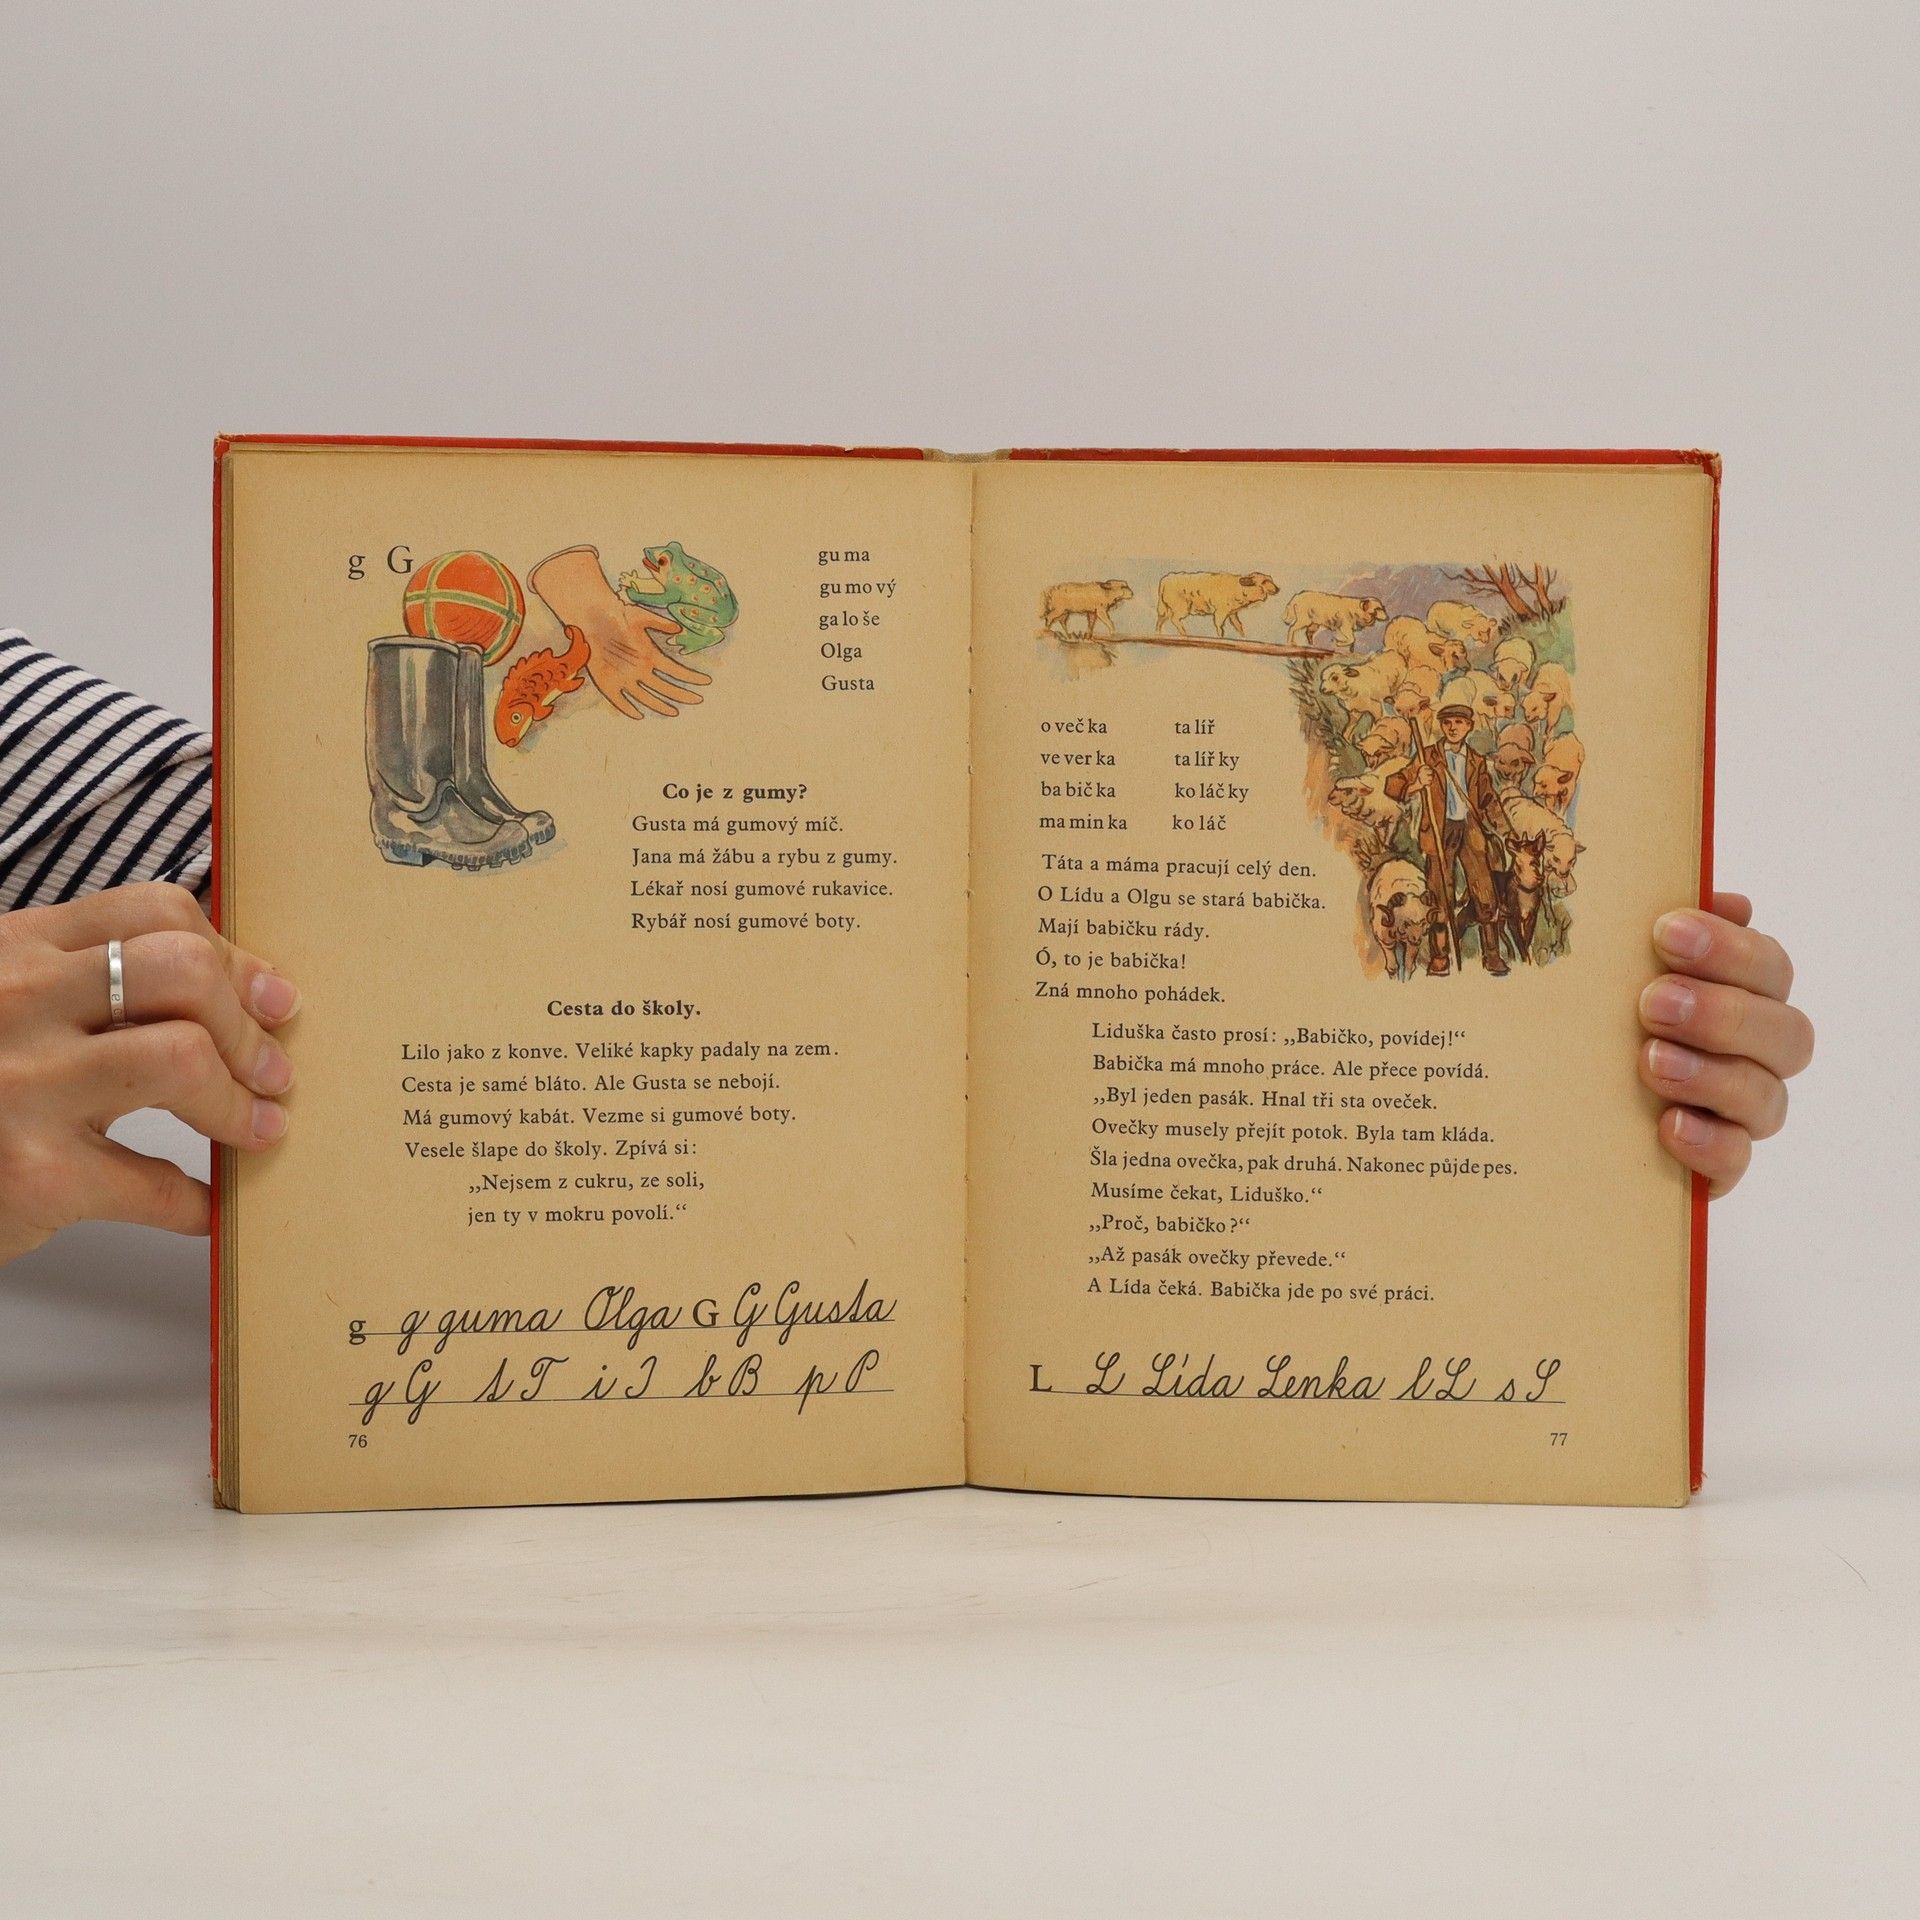 g G
gu ma
gu mo vý
ga lo še
Olga
Gusta
Co je z gumy?
Gusta má gumový míč.
Jana má žábu a rybu z gumy.
Lékař nosí gumové rukavice.
Rybář nosí gumové boty.
Cesta do školy.
Lilo jako z konve. Veliké kapky padaly na zem.
Cesta je samé bláto. Ale Gusta se nebojí.
Má gumový kabát. Vezme si gumové boty.
Vesele šlape do školy. Zpívá si:
„Nejsem z cukru, ze soli,
jen ty v mokru povolí.“
g g guma Olga G G Gusta
g G t T i I b B p P
76
o več ka ta líř
ve ver ka ta líř ky
ba bič ka ko láč ky
ma min ka ko láč
Táta a máma pracují celý den.
O Lídu a Olgu se stará babička.
Mají babičku rády.
Ó, to je babička!
Zná mnoho pohádek.
Liduška často prosí: „Babičko, povídej!“
Babička má mnoho práce. Ale přece povídá.
„Byl jeden pasák. Hnal tři sta oveček.
Ovečky musely přejít potok. Byla tam kláda.
Šla jedna ovečka, pak druhá. Nakonec půjde pes.
Musíme čekat, Liduško.“
„Proč, babičko?“
„Až pasák ovečky převede.“
A Lída čeká. Babička jde po své práci.
L L Lída Lenka l L s S
77